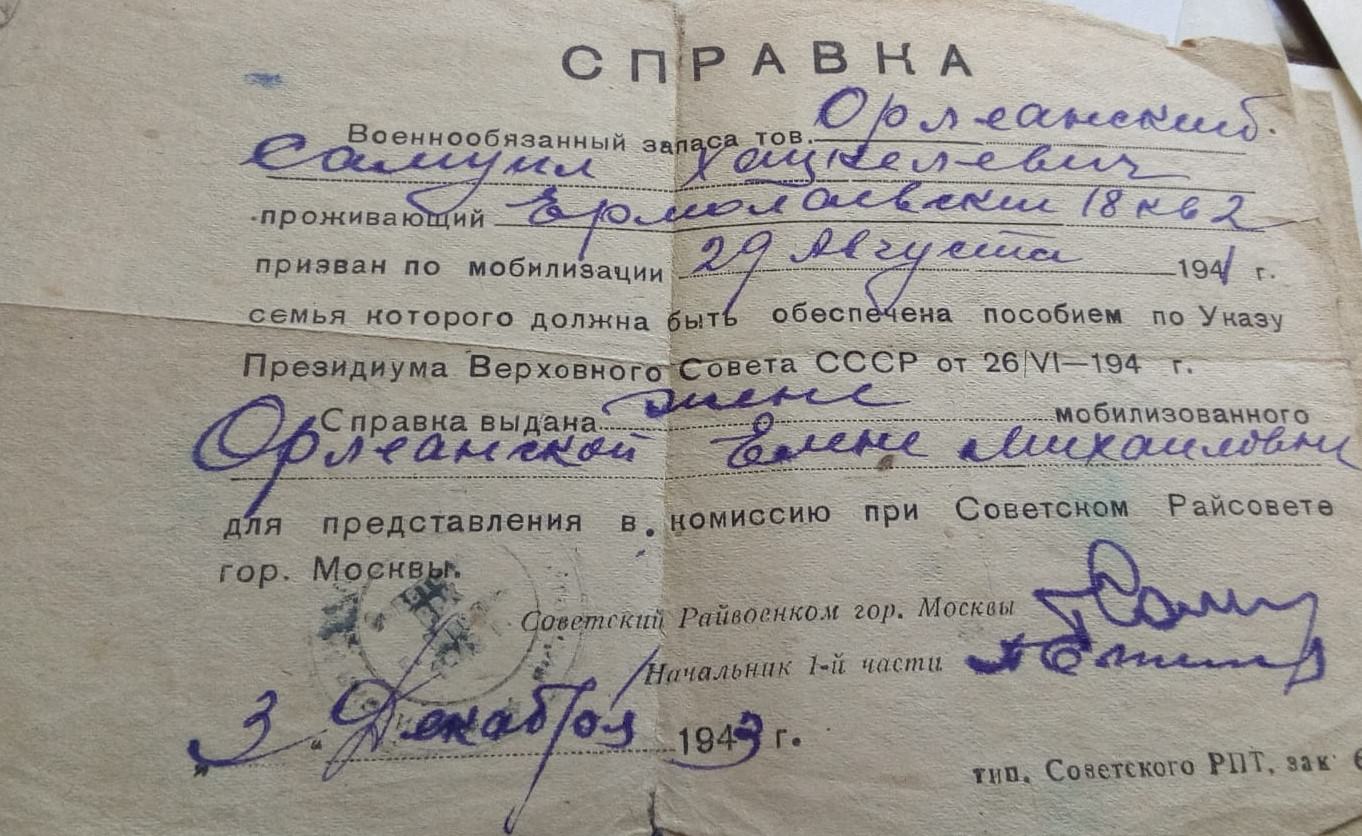 СПРАВКА
Военнообязанный запаса тов. Орлеанский
Самуил Хацкелевич
проживающий Ермолаевский 18 кв 2
призван по мобилизации 29 Августа 1941 г.
семья которого должна быть обеспечена пособием по Указу
Президиума Верховного Совета СССР от 26/VI—194 г.
Справка выдана жене мобилизованного
Орлеанской Елене Михайловне
для представления в комиссию при Советском Райсовете
гор. Москвы.
Советский Райвоенком гор. Москвы
Начальник 1-й части
„3“ Декабря 1943 г.
тип. Советского РПТ, зак